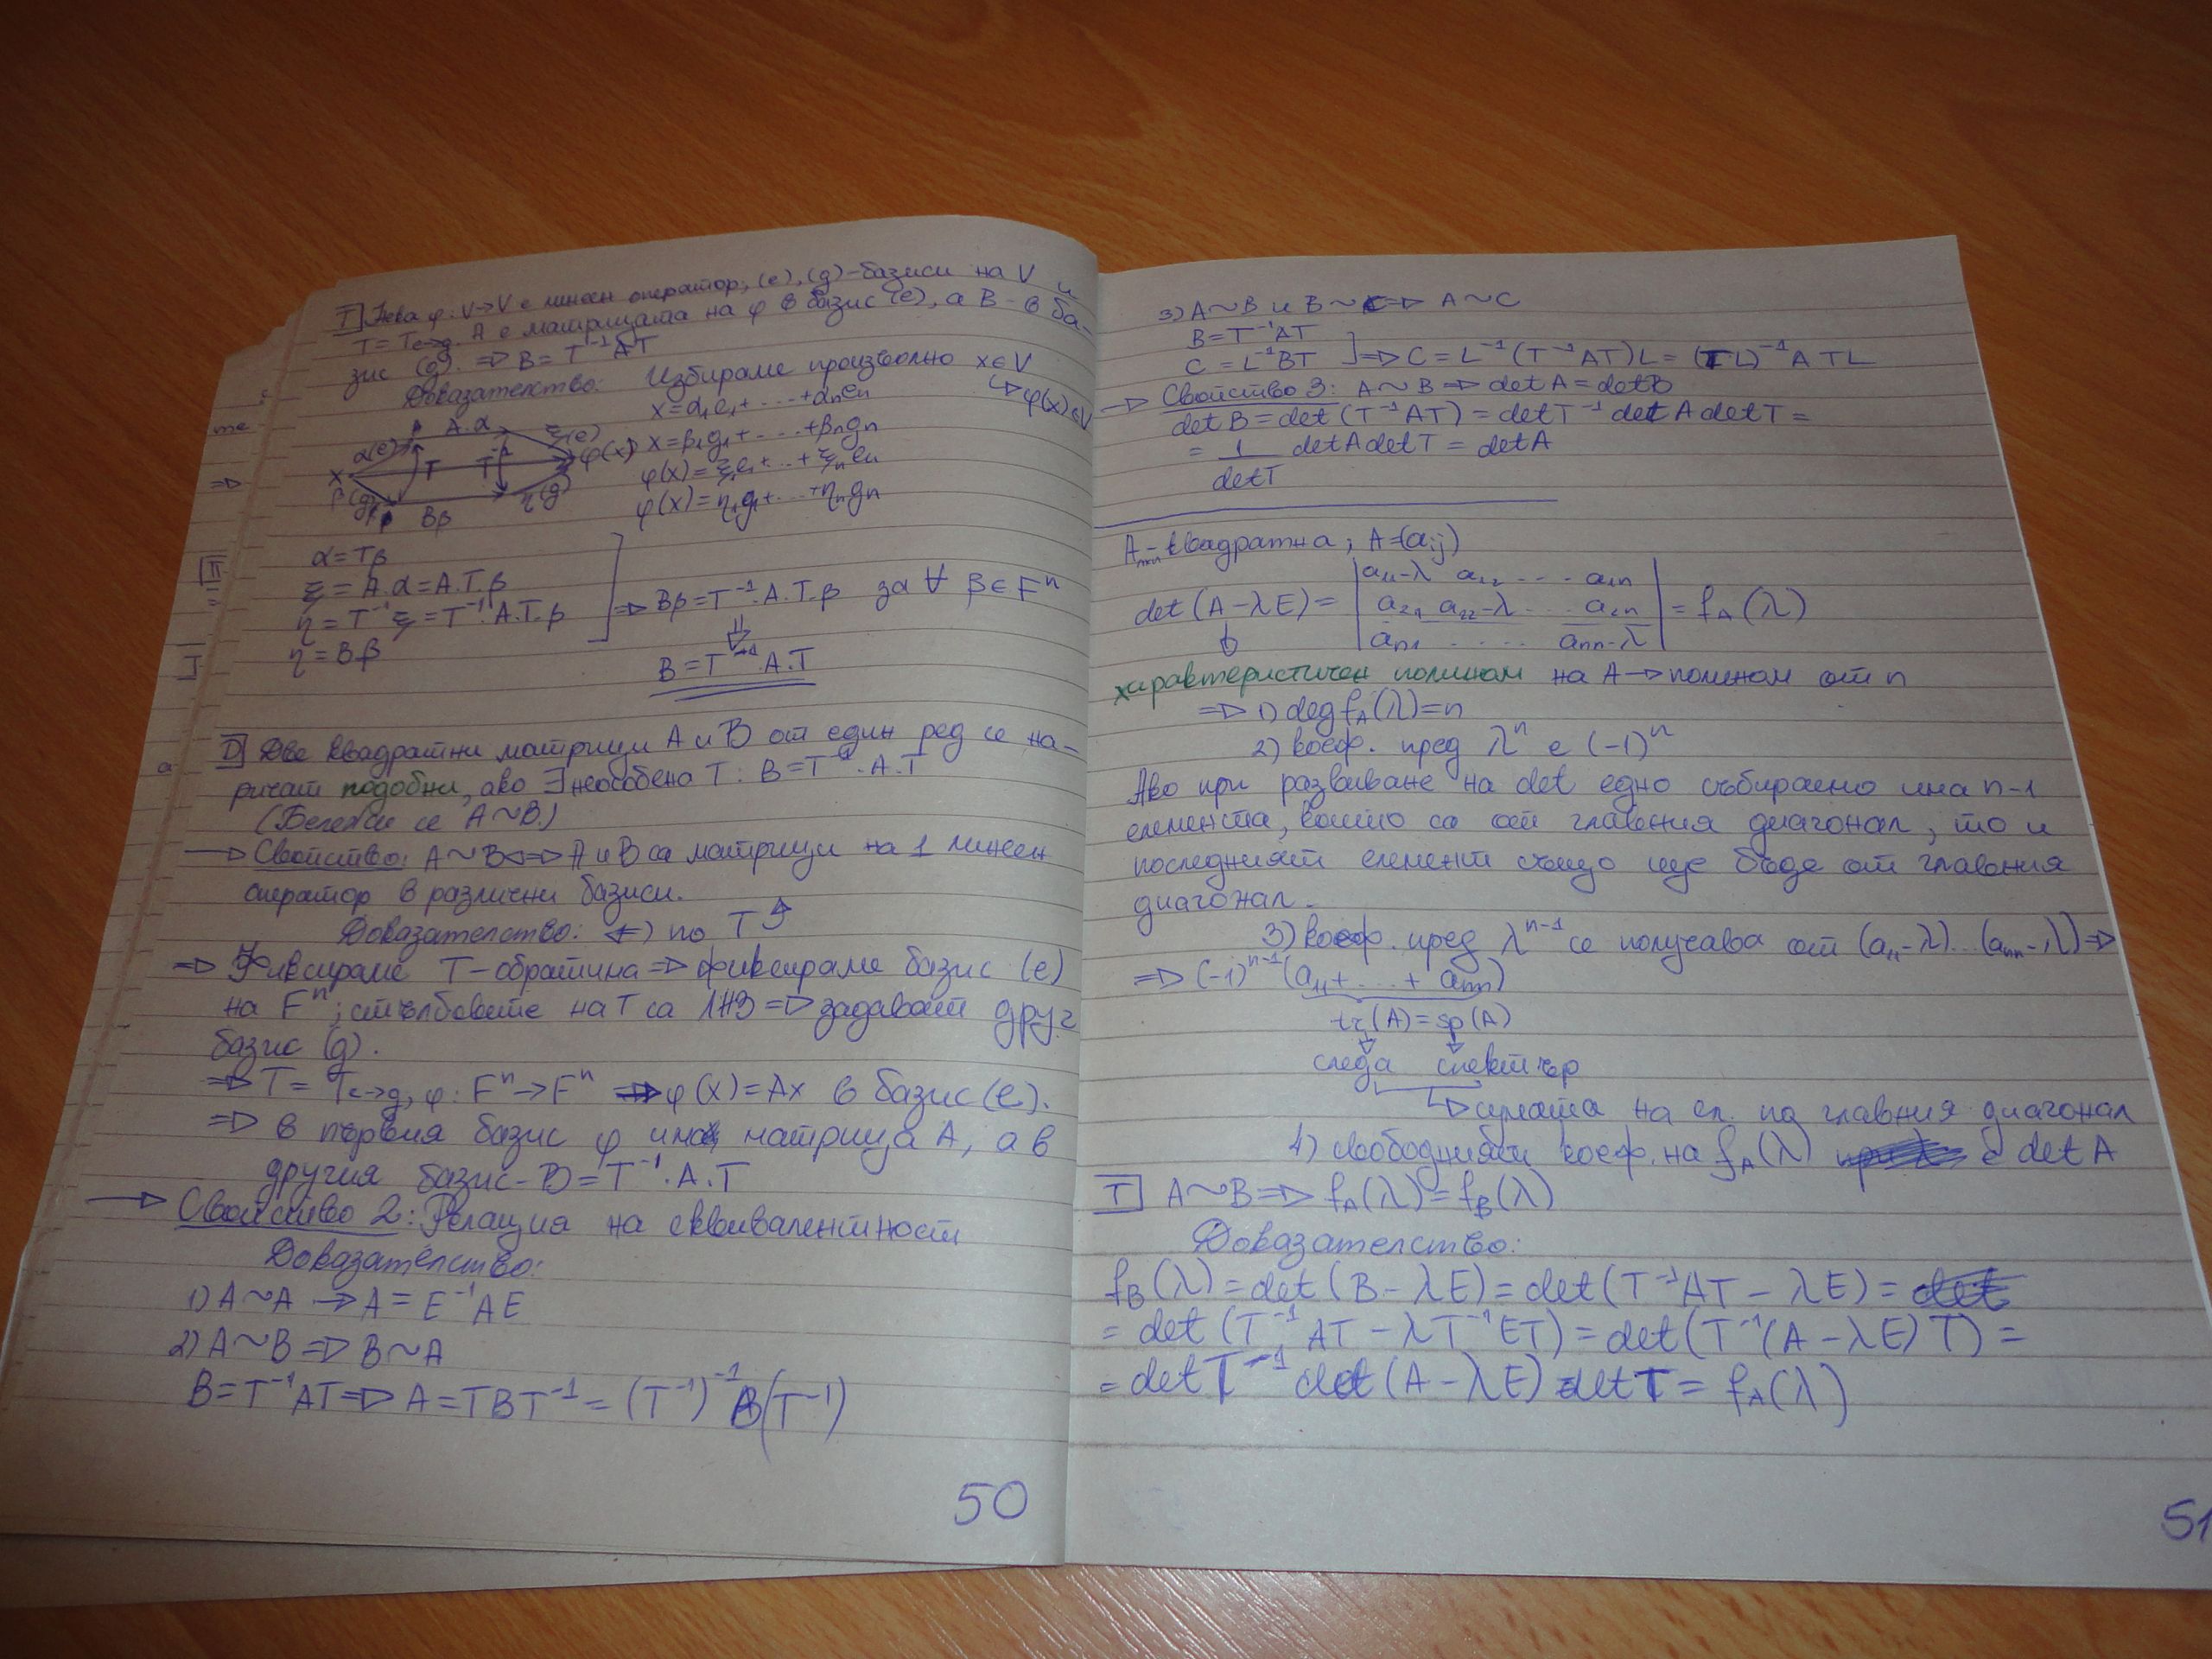 T Нека φ: V→V е линеен оператор, (e), (g)-базиси на V и
T = Te→g. A е матрицата на φ в базис (e), а B - в ба-
зис (g). ⇒ B = T⁻¹AT
Доказателство: Избираме произволно x∈V
↳ φ(x)∈V
x = α₁e₁ + .... + αnen
x = β₁g₁ + .... + βngn
φ(x) = ξ₁e₁ + ... + ξnen
φ(x) = η₁g₁ + ... + ηngn
A.α
α(e) ξ(e)
x T T⁻¹ φ(x)
β(g) η(g)
Bβ
α = Tβ
ξ = A.α = A.T.β
η = T⁻¹ξ = T⁻¹.A.T.β
η = Bβ
⇒ Bβ = T⁻¹.A.T.β за ∀ β∈Fⁿ
⇓
B = T⁻¹.A.T
D Две квадратни матрици A и B от един ред се на-
ричат подобни, ако ∃ неособена T : B = T⁻¹.A.T
(Бележи се A~B.)
→ Свойство: A~B ⇔ A и B са матрици на 1 линеен
оператор в различни базиси.
Доказателство: ←) по T
⇒ Фиксираме T - обратима ⇒ фиксираме базис (e)
на Fⁿ; стълбовете на T са ЛНЗ ⇒ задават друг
базис (g).
⇒ T = Te→g, φ: Fⁿ→Fⁿ ⇒ φ(x) = Ax в базис (e).
⇒ в първия базис φ има матрица A, а в
другия базис - B = T⁻¹.A.T
→ Свойство 2: Релация на еквивалентност
Доказателство:
1) A~A → A = E⁻¹AE
2) A~B ⇒ B~A
B = T⁻¹AT ⇒ A = TBT⁻¹ = (T⁻¹)⁻¹B(T⁻¹)
50
3) A~B и B~C ⇒ A~C
B = T⁻¹AT
C = L⁻¹BT ] ⇒ C = L⁻¹(T⁻¹AT)L = (TL)⁻¹A TL
→ Свойство 3: A~B ⇒ detA = detB
detB = det(T⁻¹AT) = detT⁻¹ detA detT =
= 1/detT detA detT = detA
Anxn - квадратна, A = (aij)
det(A-λE) = | a₁₁-λ a₁₂ .... a₁n |
| a₂₁ a₂₂-λ ... a₂n | = fA(λ)
| an₁ ..... ann-λ |
характеристичен полином на A → полином от n
⇒ 1) deg fA(λ) = n
2) коеф. пред λⁿ е (-1)ⁿ
Ако при развиване на det едно събираемо има n-1
елемента, които са от главния диагонал, то и
последният елемент също ще бъде от главния
диагонал.
3) коеф. пред λⁿ⁻¹ се получава от (a₁₁-λ)...(ann-λ) ⇒
⇒ (-1)ⁿ⁻¹(a₁₁ + ... + ann)
tr(A) = sp(A)
следа спектър
↳ сумата на ел. по главния диагонал
4) свободният коеф. на fA(λ) е detA
T A~B ⇒ fA(λ) = fB(λ)
Доказателство:
fB(λ) = det(B-λE) = det(T⁻¹AT - λE) =
= det(T⁻¹AT - λT⁻¹ET) = det(T⁻¹(A-λE)T) =
= detT⁻¹ det(A-λE) detT = fA(λ)
51